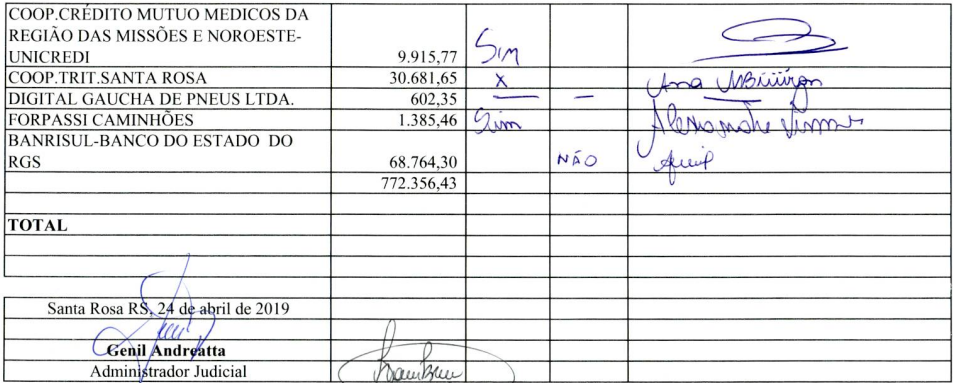 COOP.CRÉDITO MUTUO MEDICOS DA
REGIÃO DAS MISSÕES E NOROESTE-
UNICREDI 9.915,77 Sim
COOP.TRIT.SANTA ROSA 30.681,65 X Ana
DIGITAL GAUCHA DE PNEUS LTDA. 602,35 — —
FORPASSI CAMINHÕES 1.385,46 Sim Alexandre
BANRISUL-BANCO DO ESTADO DO
RGS 68.764,30 NÃO
772.356,43
TOTAL
Santa Rosa RS, 24 de abril de 2019
Genil Andreatta
Administrador Judicial